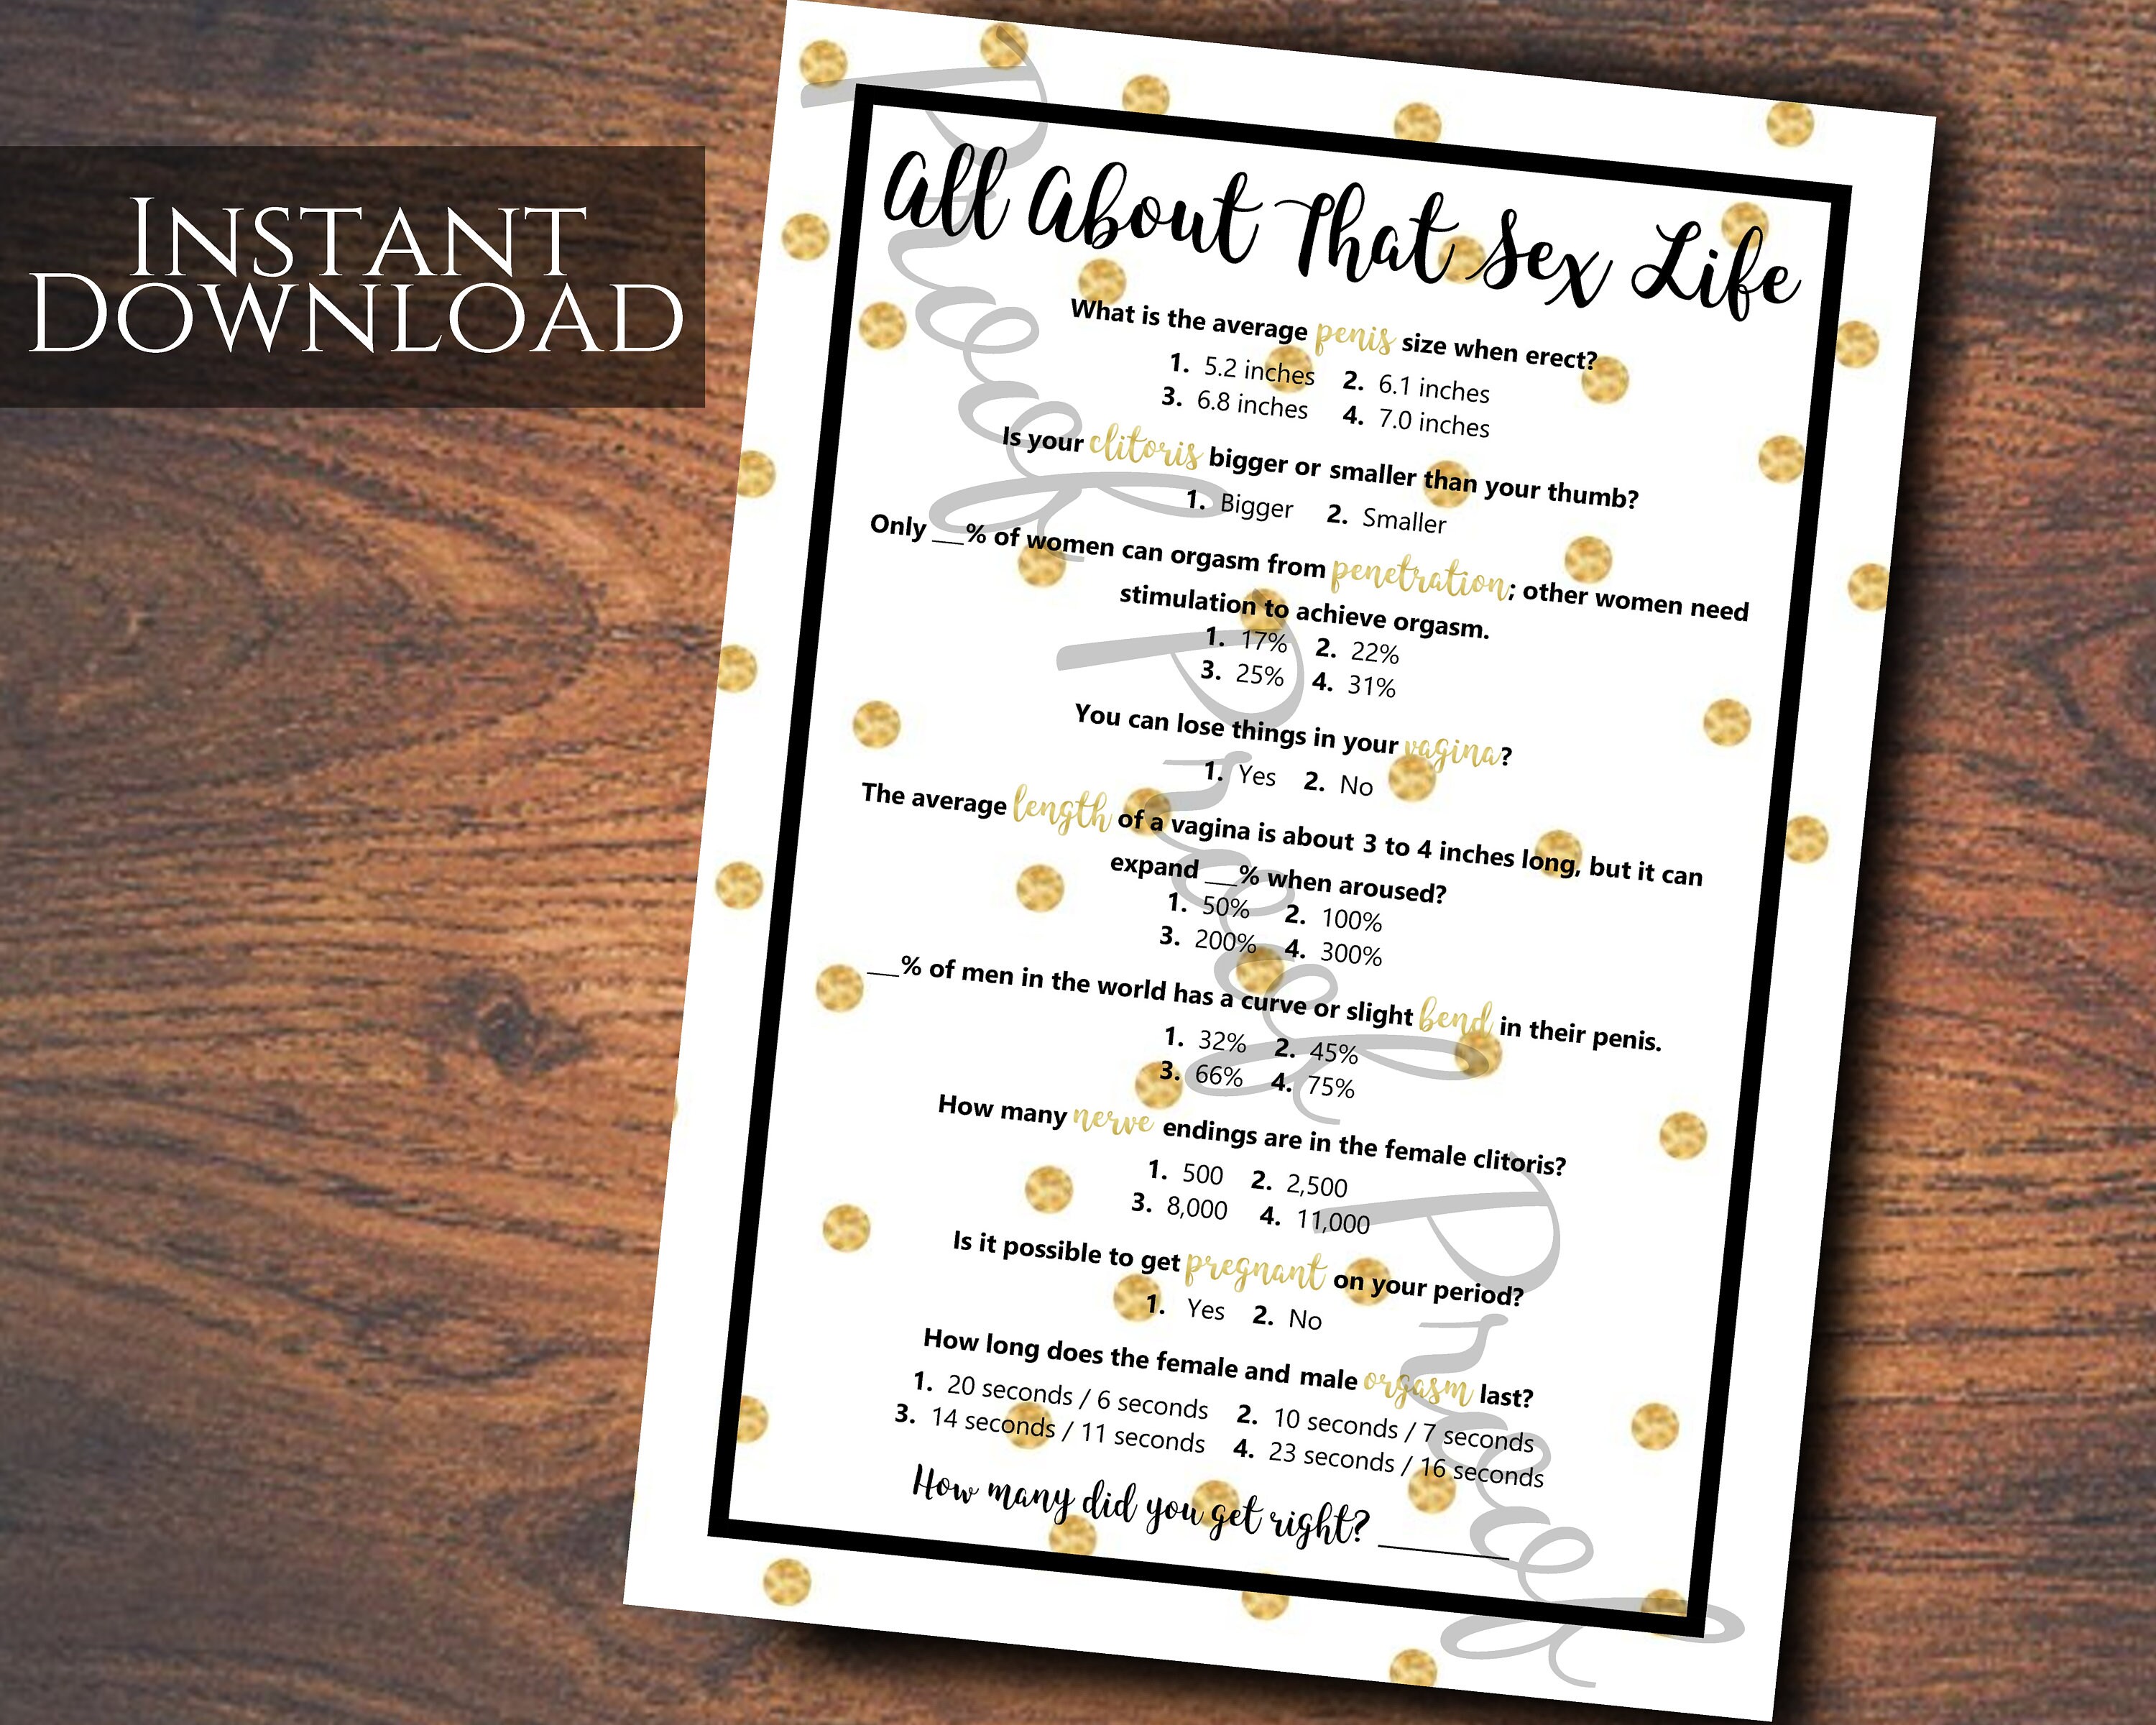 INSTANT
DOWNLOAD
All About That Sex Life
What is the average penis size when erect?
1. 5.2 inches 2. 6.1 inches
3. 6.8 inches 4. 7.0 inches
Is your clitoris bigger or smaller than your thumb?
1. Bigger 2. Smaller
Only __% of women can orgasm from penetration; other women need
stimulation to achieve orgasm.
1. 17% 2. 22%
3. 25% 4. 31%
You can lose things in your vagina?
1. Yes 2. No
The average length of a vagina is about 3 to 4 inches long, but it can
expand __% when aroused?
1. 50% 2. 100%
3. 200% 4. 300%
__% of men in the world has a curve or slight bend in their penis.
1. 32% 2. 45%
3. 66% 4. 75%
How many nerve endings are in the female clitoris?
1. 500 2. 2,500
3. 8,000 4. 11,000
Is it possible to get pregnant on your period?
1. Yes 2. No
How long does the female and male orgasm last?
1. 20 seconds / 6 seconds 2. 10 seconds / 7 seconds
3. 14 seconds / 11 seconds 4. 23 seconds / 16 seconds
How many did you get right? ________